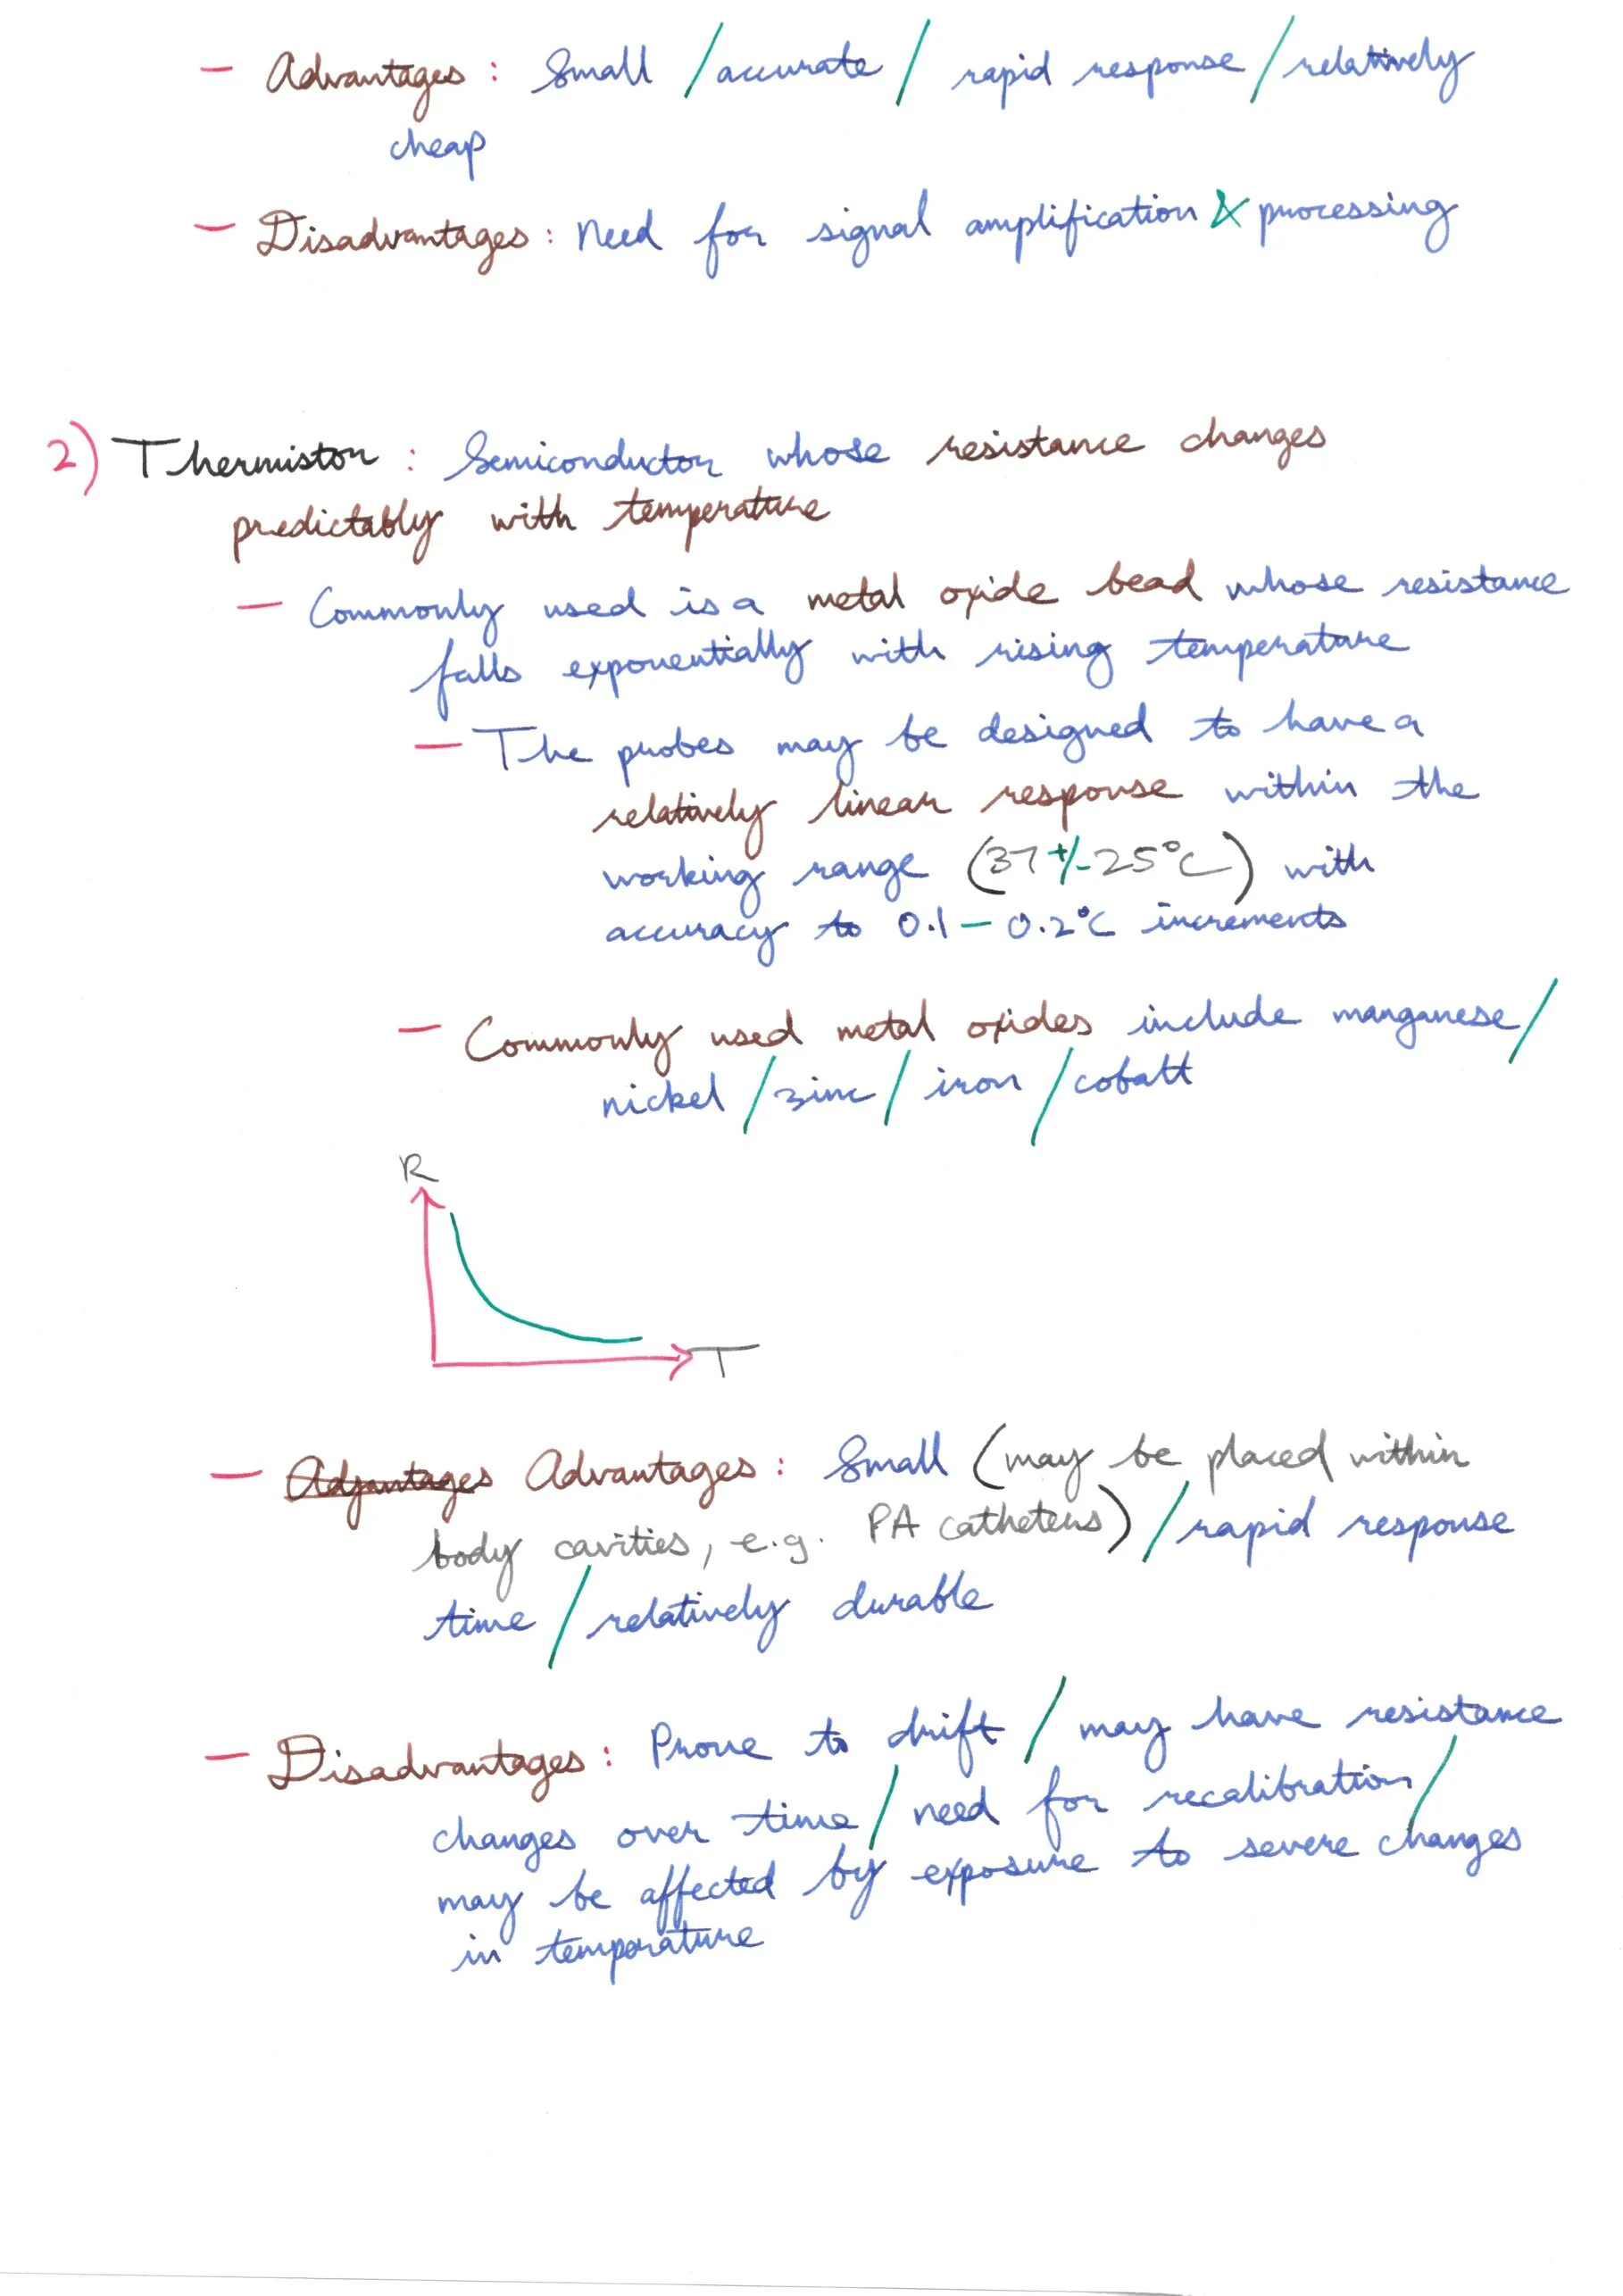 - Advantages: Small / accurate / rapid response / relatively
cheap
- Disadvantages: Need for signal amplification & processing
2) Thermistor: Semiconductor whose resistance changes
predictably with temperature
- Commonly used is a metal oxide bead whose resistance
falls exponentially with rising temperature
- The probes may be designed to have a
relatively linear response within the
working range (37 +/- 25°C) with
accuracy to 0.1 - 0.2°C increments
- Commonly used metal oxides include manganese /
nickel / zinc / iron / cobalt
R
T
- Advantages Advantages: Small (may be placed within
body cavities, e.g. PA catheters) / rapid response
time / relatively durable
- Disadvantages: Prone to drift / may have resistance
changes over time / need for recalibration /
may be affected by exposure to severe changes
in temperature